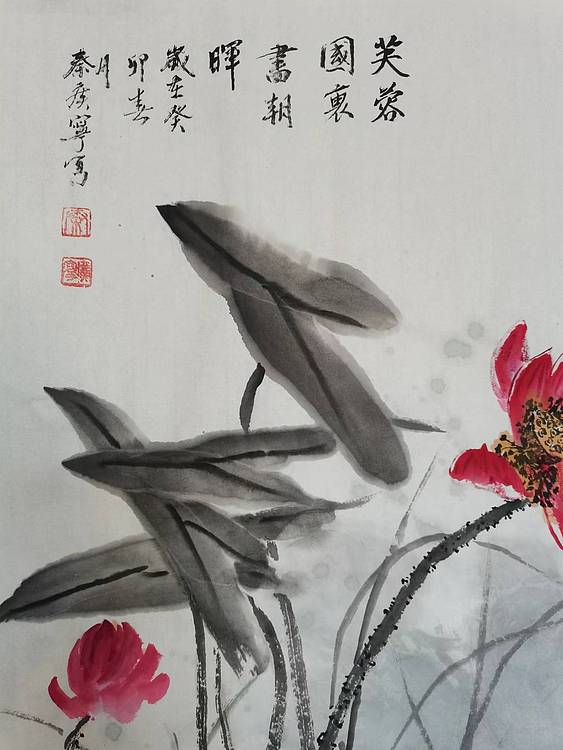 芙蓉
國裏
盡朝
暉
歲在癸
卯春
月
秦廣寧寫